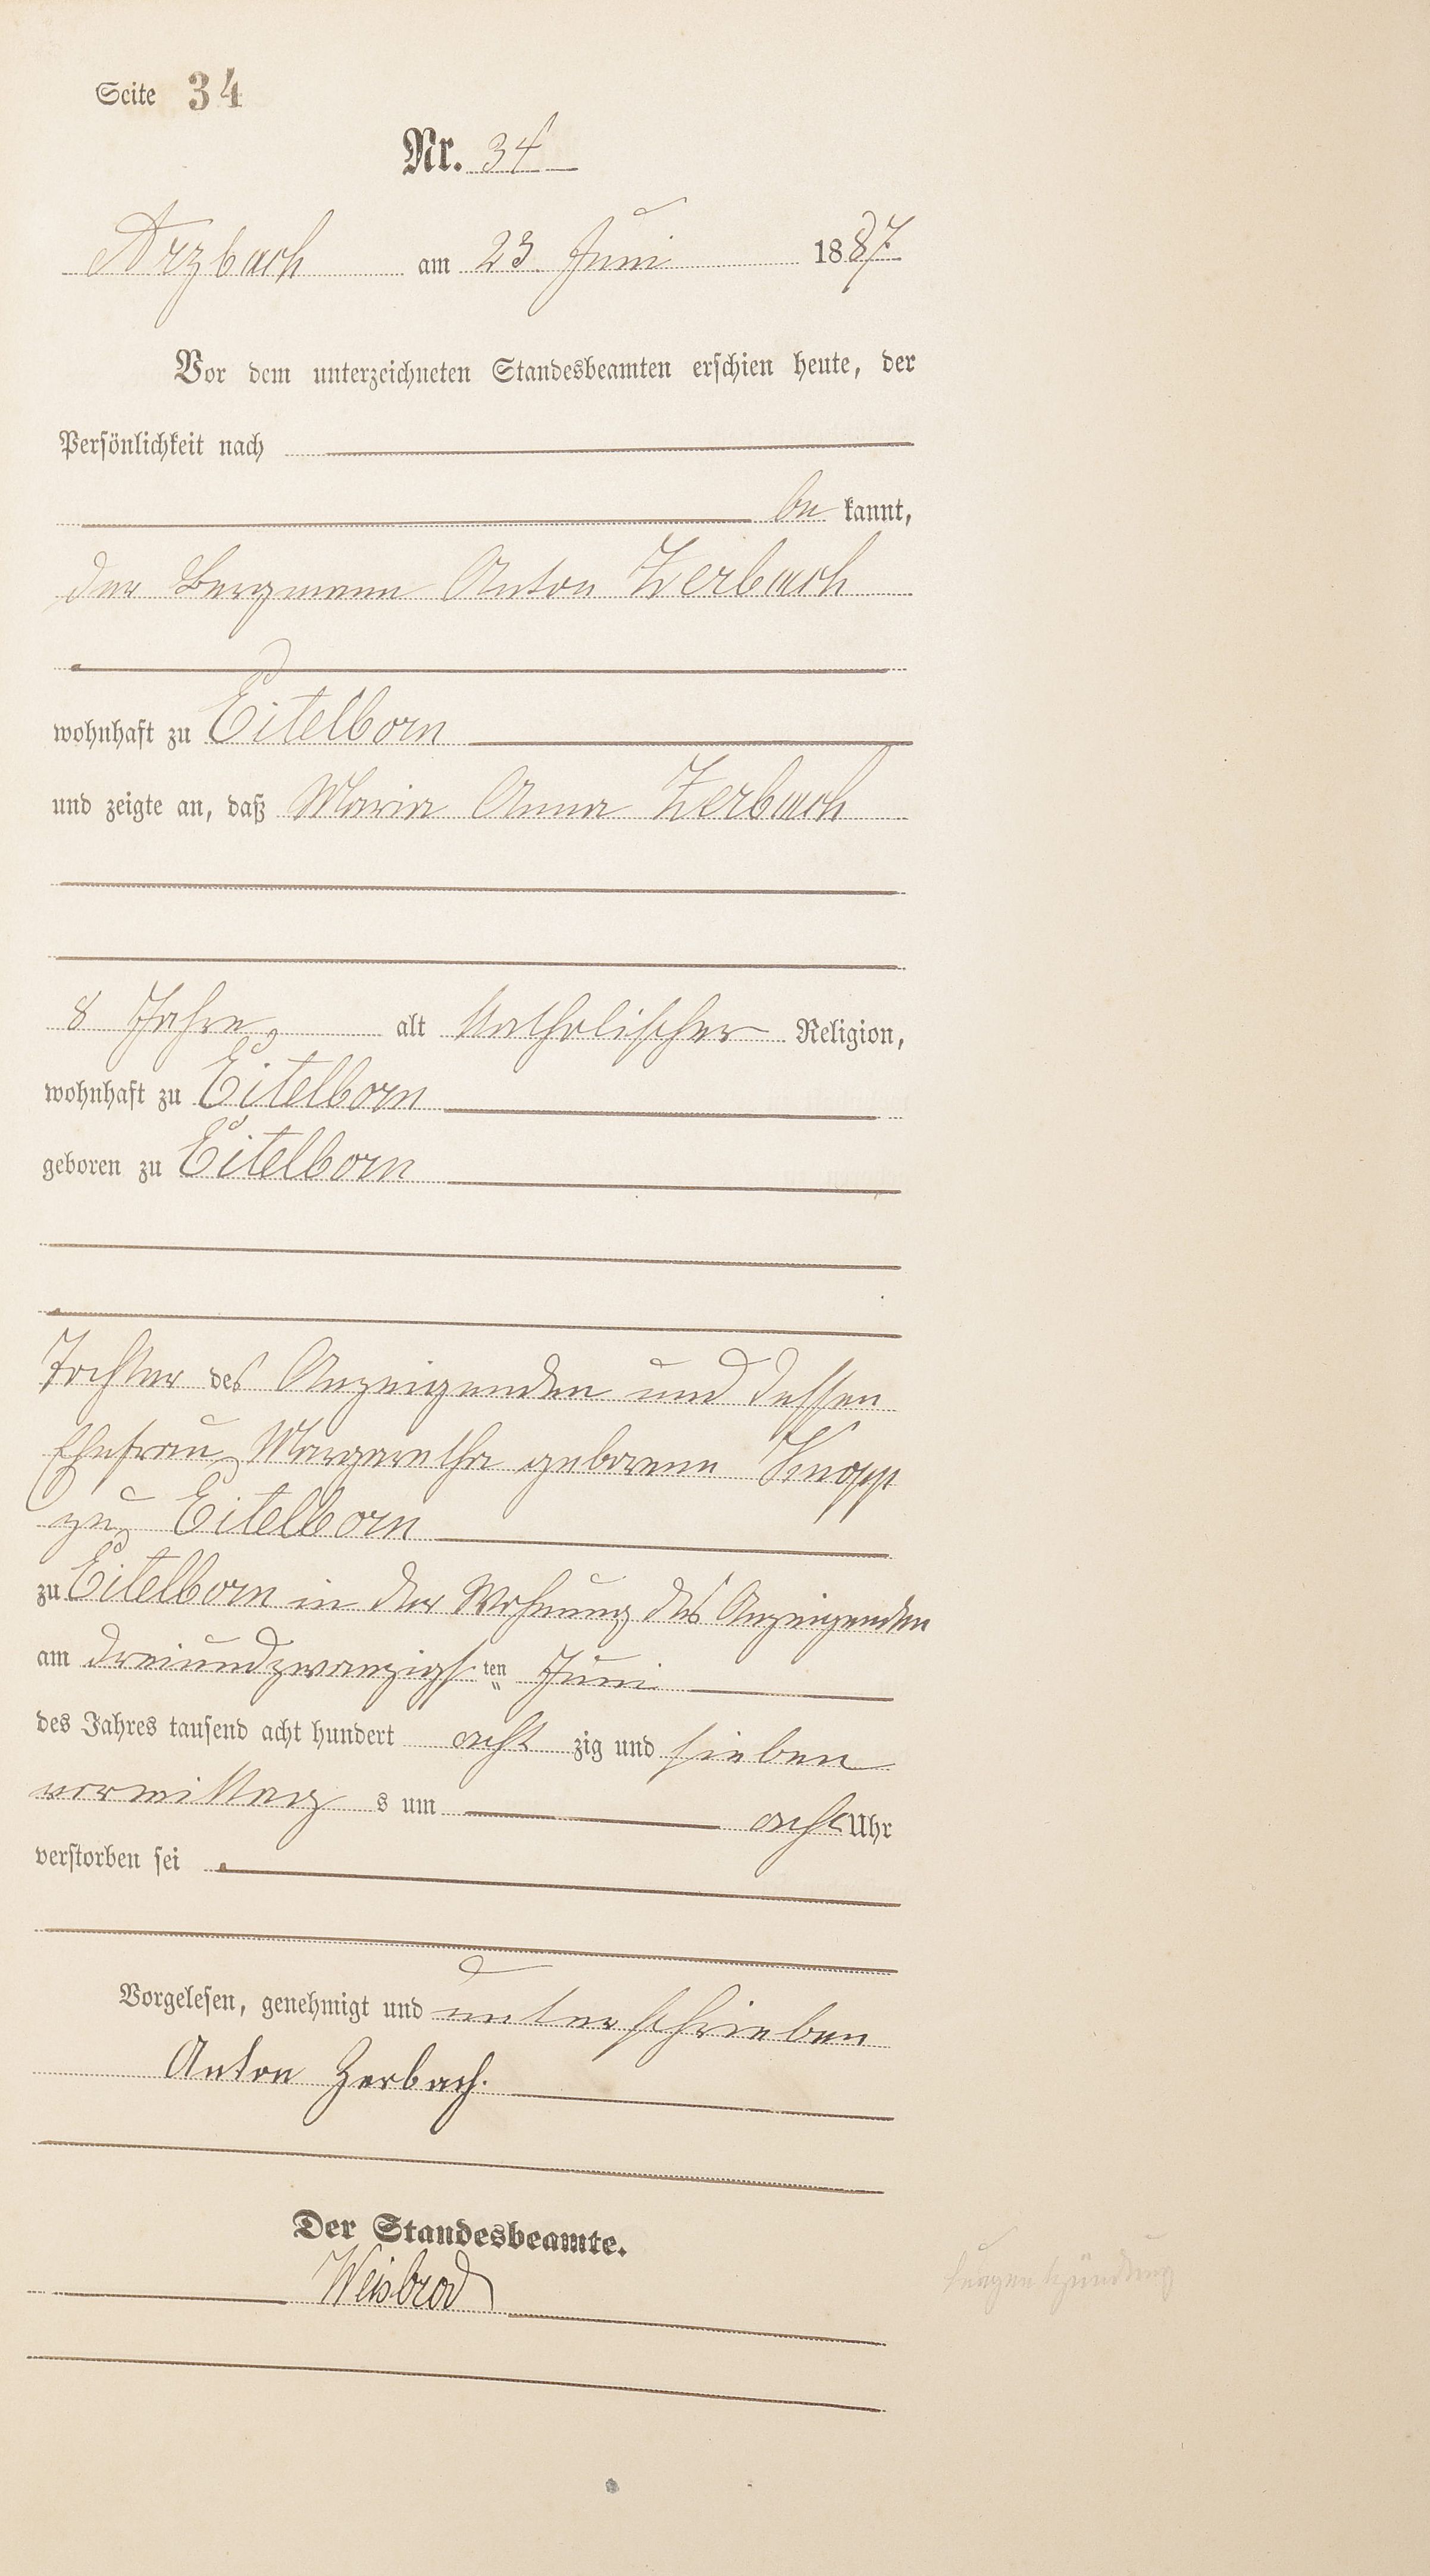 Seite 34
Nr. 34
Arzbach am 23 Juni 1887.
Vor dem unterzeichneten Standesbeamten erschien heute, der
Persönlichkeit nach
be kannt,
der Bergmann Anton Zerbach
wohnhaft zu Eitelborn
und zeigte an, daß Maria Anna Zerbach
8 Jahre, alt katholischer Religion,
wohnhaft zu Eitelborn
geboren zu Eitelborn
Tochter des Anzeigenden und dessen
Ehefrau Margaretha geborene Knopp
zu Eitelborn
zu Eitelborn in der Wohnung des Anzeigenden
am dreiundzwanzigsten Juni
des Jahres tausend acht hundert acht zig und sieben
vormittag s um acht Uhr
verstorben sei
Vorgelesen, genehmigt und unterschrieben
Anton Zerbach.
Der Standesbeamte.
Weisbrod
Lungenentzündung